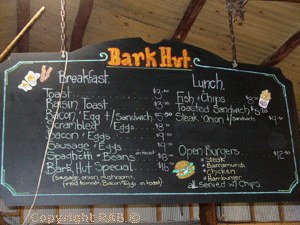 Bark Hut
Breakfast
Toast $3.00
Raisin Toast $3
Bacon, Egg + / Sandwich $5
Scrambled Eggs
Bacon + Eggs
Sausage + Eggs
Spaghetti or Beans on toast
Bark Hut Special $16
(Sausage, onion, mushroom,
fried tomato, Bacon + Eggs on toast)
Lunch
Fish + Chips
Toasted Sandwich
Steak Onion + Sandwich
Open Burgers $12
Steak
Barramundi
Chicken
Hamburger
all served w/ Chips
Copyright RAB ©